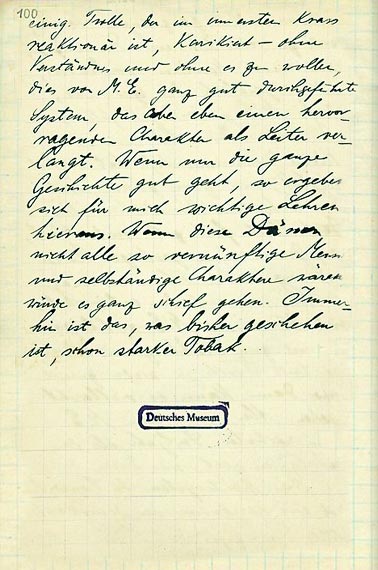 100
einig. Trolle, der im innersten krass
reaktionär ist, karikiert – ohne
Verständnis und ohne es zu wollen,
dies von M.E. ganz gut durchgeführte
System, das aber eben einen hervor-
ragenden Charakter als Leiter ver-
langt. Wenn nur die ganze
Geschichte gut geht, so ergeben
sich für mich wichtige Lehren
hieraus. Wenn diese Dänen
nicht alle so vernünftige Mensch
und selbständige Charaktere wären
würde es ganz schief gehen. Immer-
hin ist das, was bisher geschehen
ist, schon starker Tobak.
Deutsches Museum